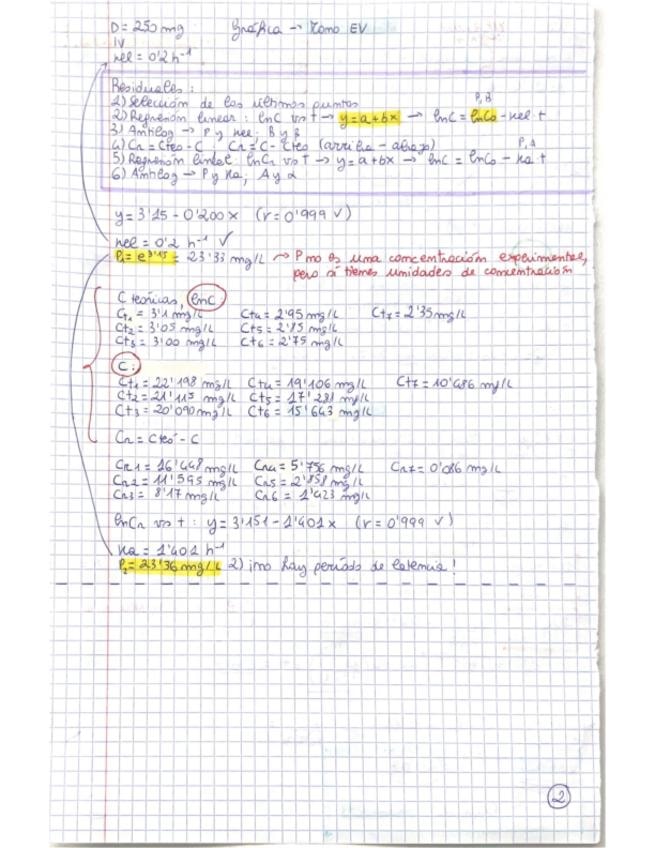 D = 250 mg   Gráfica → Mono EV
IV
kel = 0'2 h⁻¹
Residuales:
1) Selección de los últimos puntos
P, B
2) Regresión linear: lnC vs t → y = a + bx → lnC = lnC₀ - kel t
3) Antilog → P y kel; B y β
4) Cr = Cteo - C   Cr = C - Cteo (arriba - abajo)
P, A
5) Regresión lineal: lnCr vs t → y = a + bx → lnC = lnC₀ - ka t
6) Antilog → P y ka; A y α
y = 3'15 - 0'200x (r = 0'999 ✓)
kel = 0'2 h⁻¹ ✓
P₁ = e^3'15 = 23'33 mg/L → P no es una concentración experimental,
pero sí tienes unidades de concentración
C teóricas, lnC:
Ct₁ = 3'1 mg/L   Ct4 = 2'95 mg/L   Ct7 = 2'35 mg/L
Ct2 = 3'05 mg/L   Ct5 = 2'85 mg/L
Ct3 = 3'00 mg/L   Ct6 = 2'75 mg/L
C:
Ct1 = 22'198 mg/L   Ct4 = 19'106 mg/L   Ct7 = 10'486 mg/L
Ct2 = 21'115 mg/L   Ct5 = 17'281 mg/L
Ct3 = 20'090 mg/L   Ct6 = 15'643 mg/L
Cr = Cteo - C
Cr1 = 16'448 mg/L   Cr4 = 5'756 mg/L   Cr7 = 0'086 mg/L
Cr2 = 11'595 mg/L   Cr5 = 2'858 mg/L
Cr3 = 8'17 mg/L   Cr6 = 1'423 mg/L
lnCr vs t: y = 3'151 - 1'401x (r = 0'999 ✓)
ka = 1'401 h⁻¹
P₂ = 23'36 mg/L 2) ¡no hay período de latencia!
2